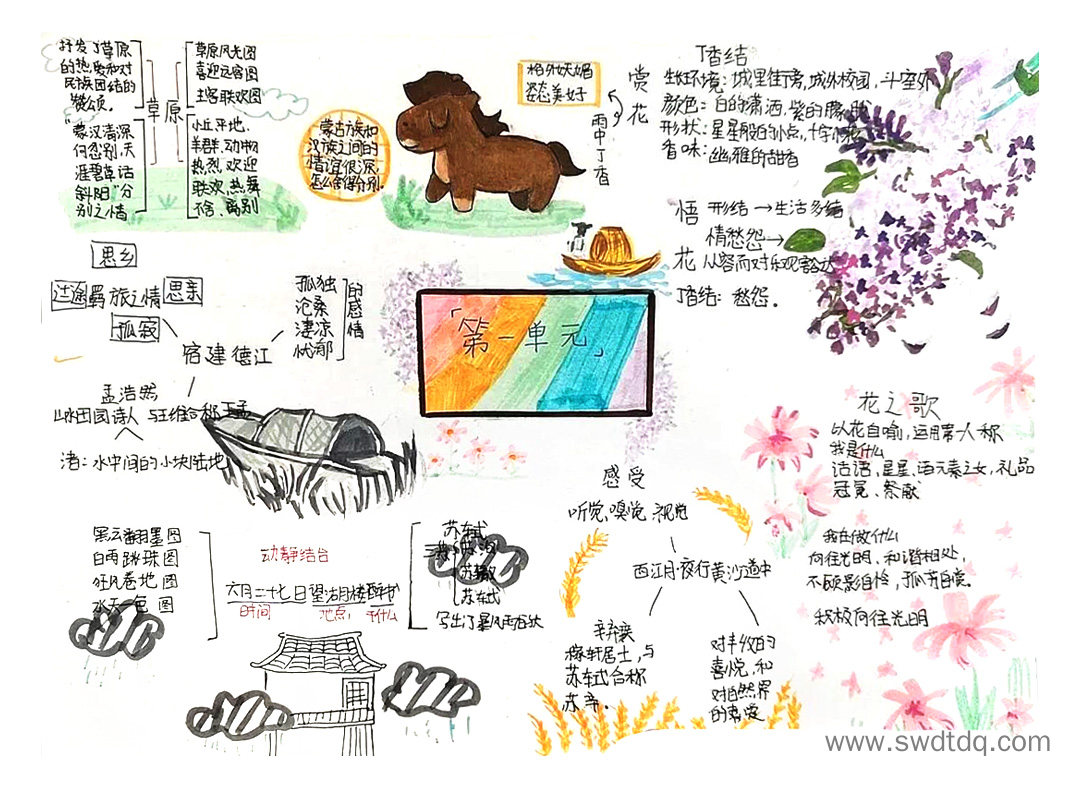 抒发了草原
的热爱和对
民族团结的
赞颂。
"蒙汉情深
何忍别,天
涯碧草话
斜阳"分
别之情
草原
草原风光图
喜迎远客图
主客联欢图
小丘平地,
羊群,动物
热烈欢迎
联欢,热舞
不舍、离别
蒙古族和
汉族之间的
情谊很深,
怎么舍得分别。
格外妩媚
姿态美好
赏花
雨中丁香
丁香结
生长环境:城里街旁,城外校园,斗室外
颜色:白的潇洒,紫的朦胧
形状:星星般的小点,十字小
香味:幽雅的甜香
悟花
形结→生活多结
情愁怨→
从容面对乐观豁达
丁香结:愁怨。
「第一单元」
思乡
过途
羁旅之情
思亲
孤寂
宿建德江
孤独
沧桑
凄凉
忧郁
的感情
孟浩然
山水田园诗人 与王维合称王孟
渚:水中间的小块陆地
黑云翻墨图
白雨跳珠图
狂风卷地图
水天一色图
动静结合
六月二十七日望湖楼醉书
时间 地点, 干什么
苏东坡
苏洵
苏辙
苏东坡
写出了暴风雨
感受
听觉、嗅觉、视觉
西江月·夜行黄沙道中
辛弃疾
稼轩居士,与
苏东坡合称
苏辛。
对丰收的
喜悦,和
对自然界
的喜爱
花之歌
以花自喻,运用第一人称
我是什么
话语,星星,诸元素之女,礼品
冠冕、祭献
我在做什么
向往光明、和谐相处,
不顾影自怜,孤芳自赏。
积极向往光明
www.swdtdq.com